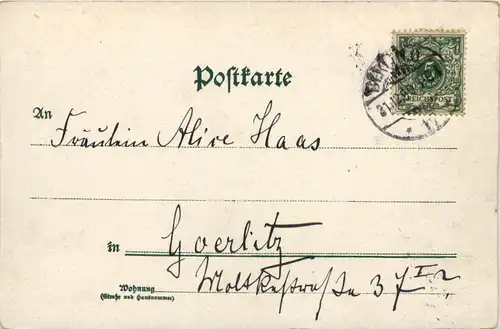 5
REICHSPOST
Postkarte
An
Fräulein Alice Haas
in
Goerlitz
Moltkestrasse 37 I r
Wohnung
(Straße und Hausnummer)